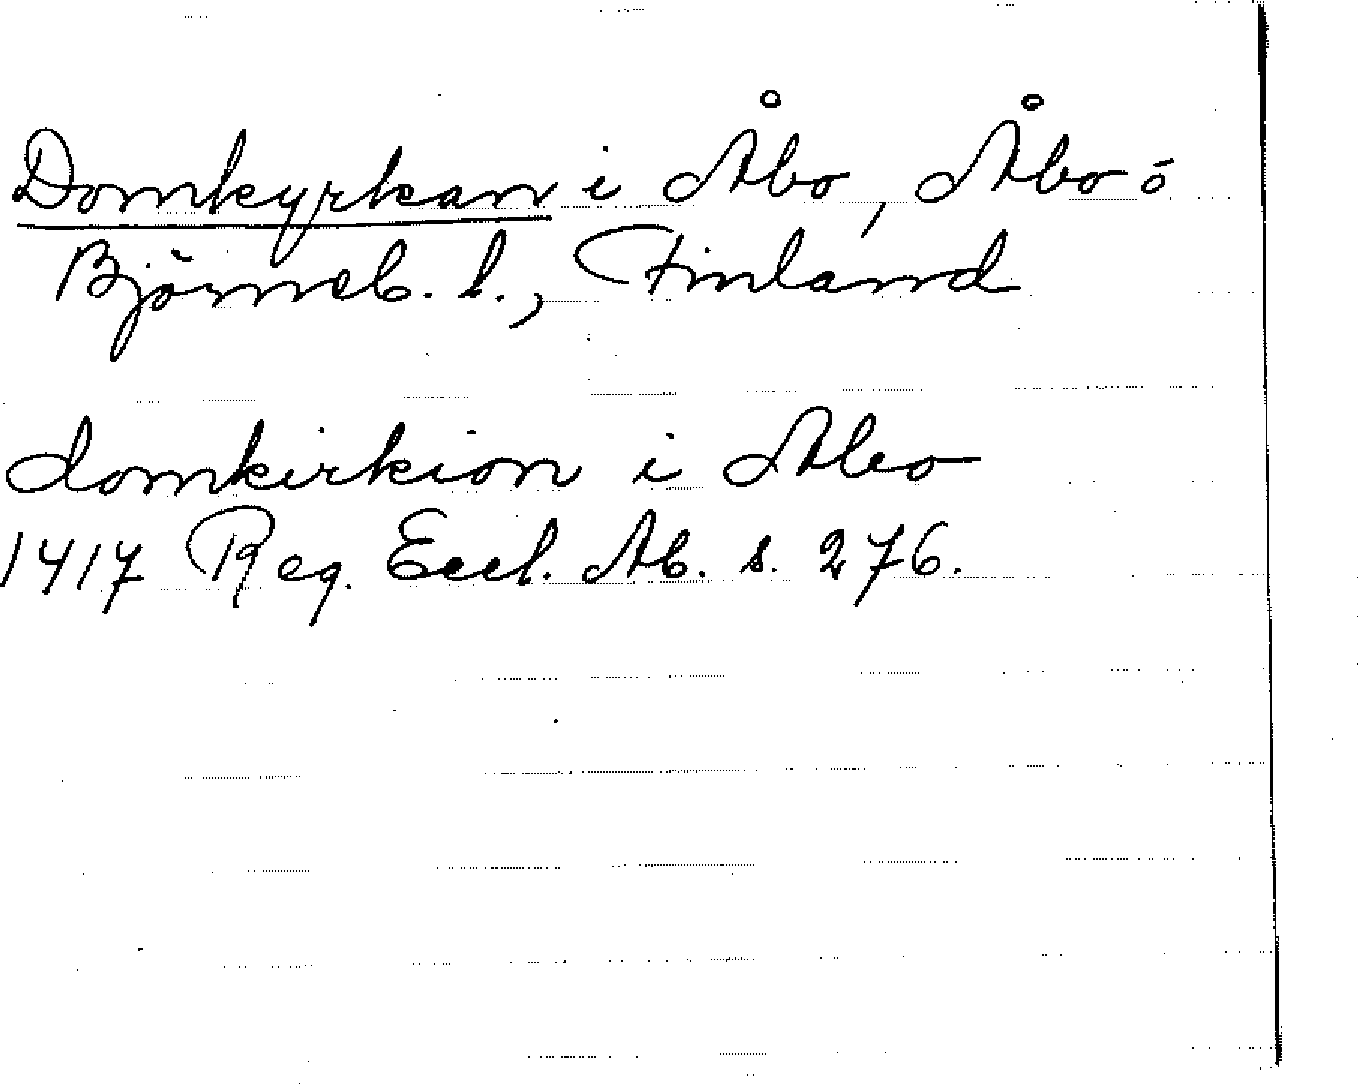 Domkyrkan i Åbo, Åbo ó
Björneb. l., Finland
domkirkion i Abo
1417 Reg. Eccl. Ab. s. 276.